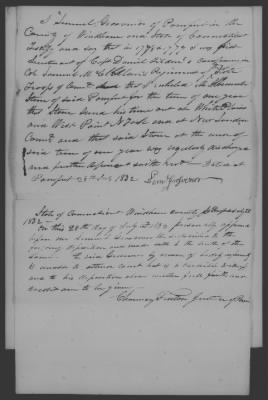 I Lemuel Grosvenor of Pomfret in the
County of Windham and State of Connecticut
testify and say that in 1778 & 1779 I was first
Lieutenant of Capt Daniel company in
Col Samuel McClellan's Regiment of State
Troops of Connt that I enlisted
of said Pomfret for the term of one year
that served his time out at White Plains
and West Point N York and at New London
Connt and that said at the end of
said term of one year was regularly discharged
and further deposes & saith not Dated at
Pomfret 28th July 1832
Lem Grosvenor
State of Connecticut Windham County ss Pomfret July 28
1832
On this 28th day of July AD 1832 personally appeared
before me Lemuel Grosvenor the subscriber to the
foregoing deposition and made oath to the truth of the
same. The said Grosvenor by reason of bodily infirmity
is unable to attend court but is a
and to his deposition above written full faith and
credit are to be given
Justice of Peace